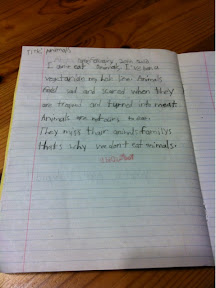 Title, Animals
I don't eat animals. I've been a
vegetarian my hole life. Animals
feel sad and scared when they
are traped and turned into meat.
Animals are not ours to own.
They miss their animals familys
thats why we don't eat animals.